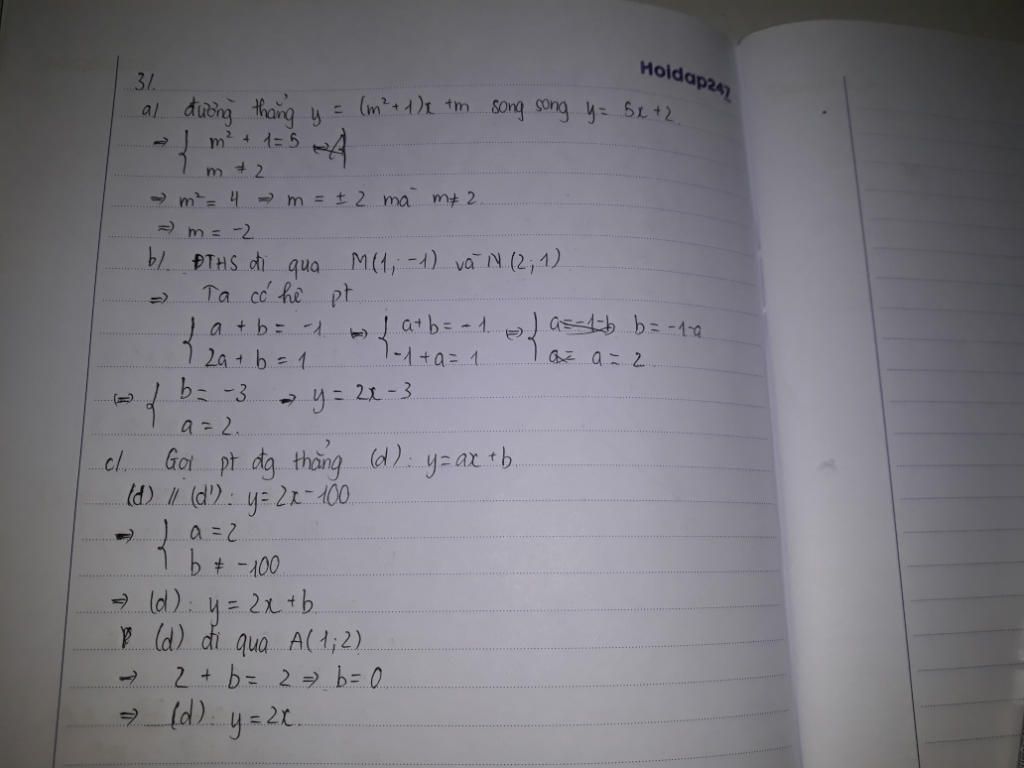 Hoidap247
3/.
a/ đường thẳng y = (m² + 1)x + m song song y = 5x + 2
⇒ { m² + 1 = 5
m ≠ 2
⇒ m² = 4 ⇒ m = ± 2 mà m ≠ 2
⇒ m = -2
b/. ĐTHS đi qua M(1; -1) và N(2; 1)
⇒ Ta có hê pt
{ a + b = -1 ⇔ { a + b = -1 ⇔ { a = -1 - b b = -1 - a
2a + b = 1 -1 + a = 1 a = a = 2
⇔ { b = -3 ⇒ y = 2x - 3
a = 2.
c/. Gọi pt đg thẳng (d): y = ax + b
(d) // (d'): y = 2x - 100
⇒ { a = 2
b ≠ -100
⇒ (d): y = 2x + b
(d) đi qua A(1; 2)
⇒ 2 + b = 2 ⇒ b = 0
⇒ (d): y = 2x.